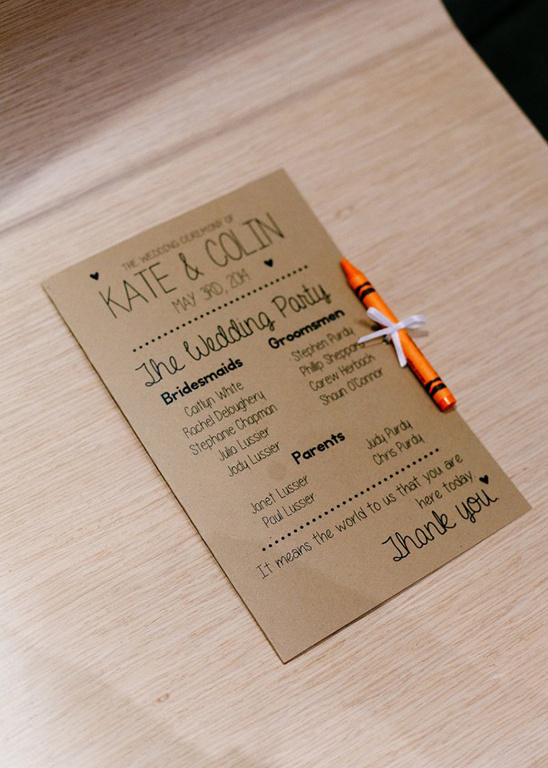 THE WEDDING CEREMONY OF
KATE & COLIN
MAY 3RD, 2014
The Wedding Party
Bridesmaids
Caitlyn White
Rachel Deloughery
Stephanie Chapman
Julia Lussier
Jody Lussier
Groomsmen
Stephen Purdy
Philip Sheppard
Carew Herbach
Shaun O'Connor
Parents
Janet Lussier
Paul Lussier
Judy Purdy
Chris Purdy
It means the world to us that you are
here today
Thank you